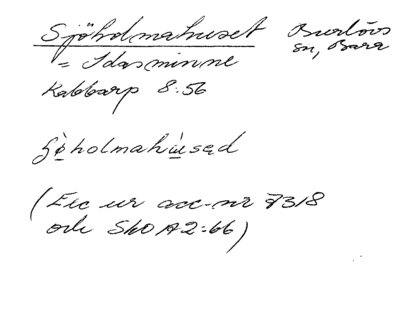 Sjöholmahuset
Burlövs
sn, Bara
= Idasminne
Kabbarp 8:56
ʃø̀holmahùsəd
(Exc ur acc-nr 7318
och SkO A2:66)